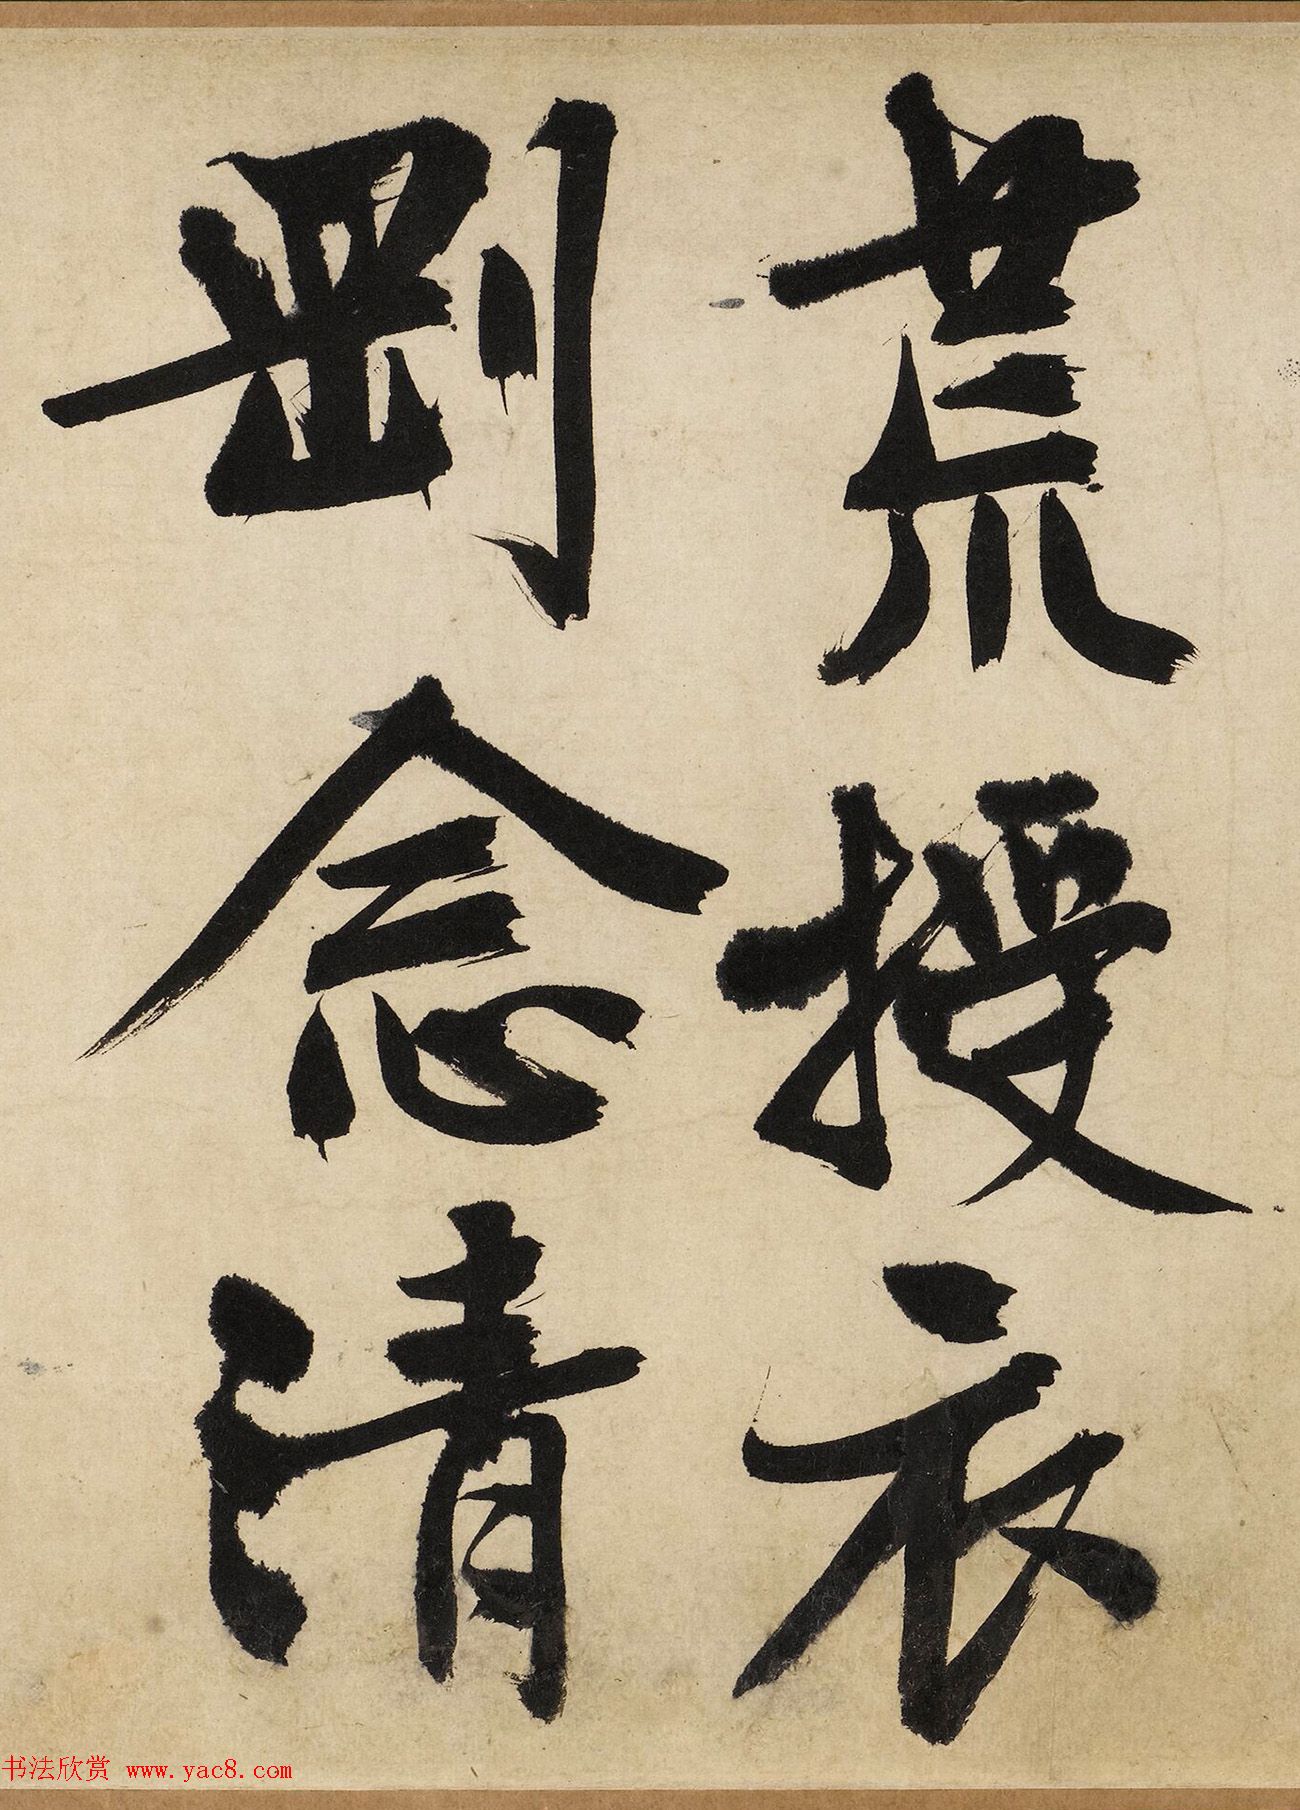 荒授衣
剛念清
书法欣赏 www.yac8.com